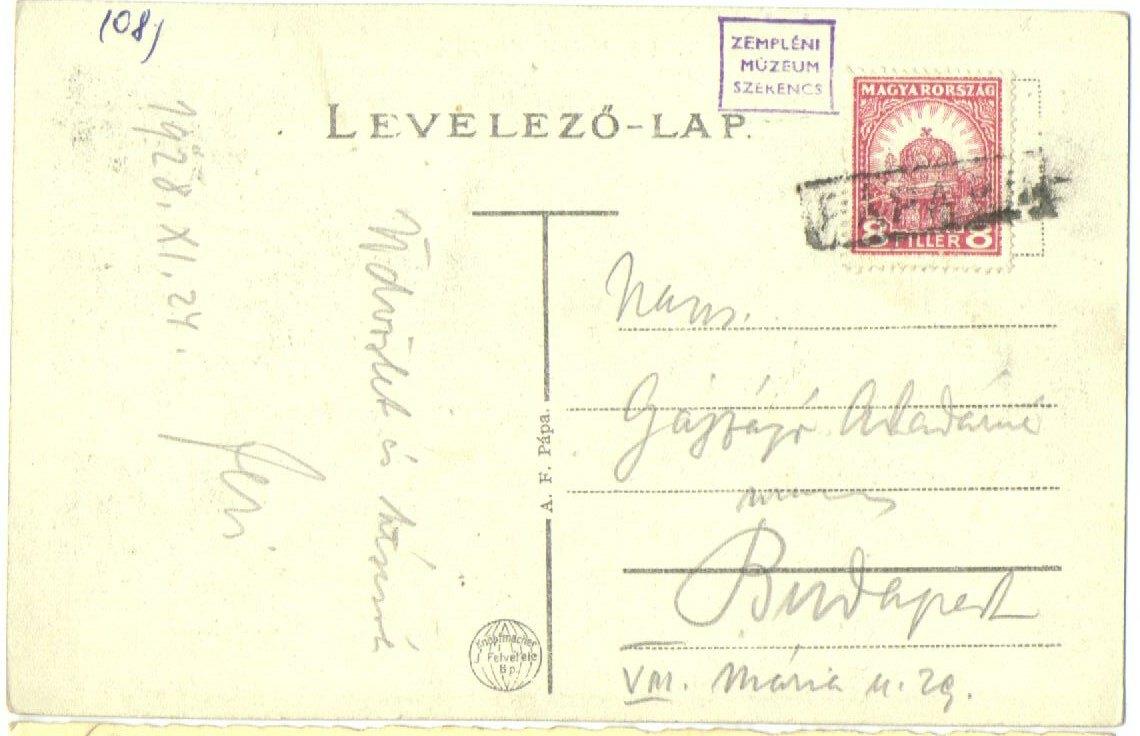 (08)
ZEMPLÉNI
MÚZEUM
SZERENCS
LEVELEZŐ-LAP.
MAGYARORSZÁG
8 FILLÉR 8
1928. XI. 24.
Üdvözlet és
Feri
A. F. Pápa.
Knopfmacher
Felvétele
Bp.
Nam.
Gajzágó Aladárné
Budapest
VIII. Mária u. 29.